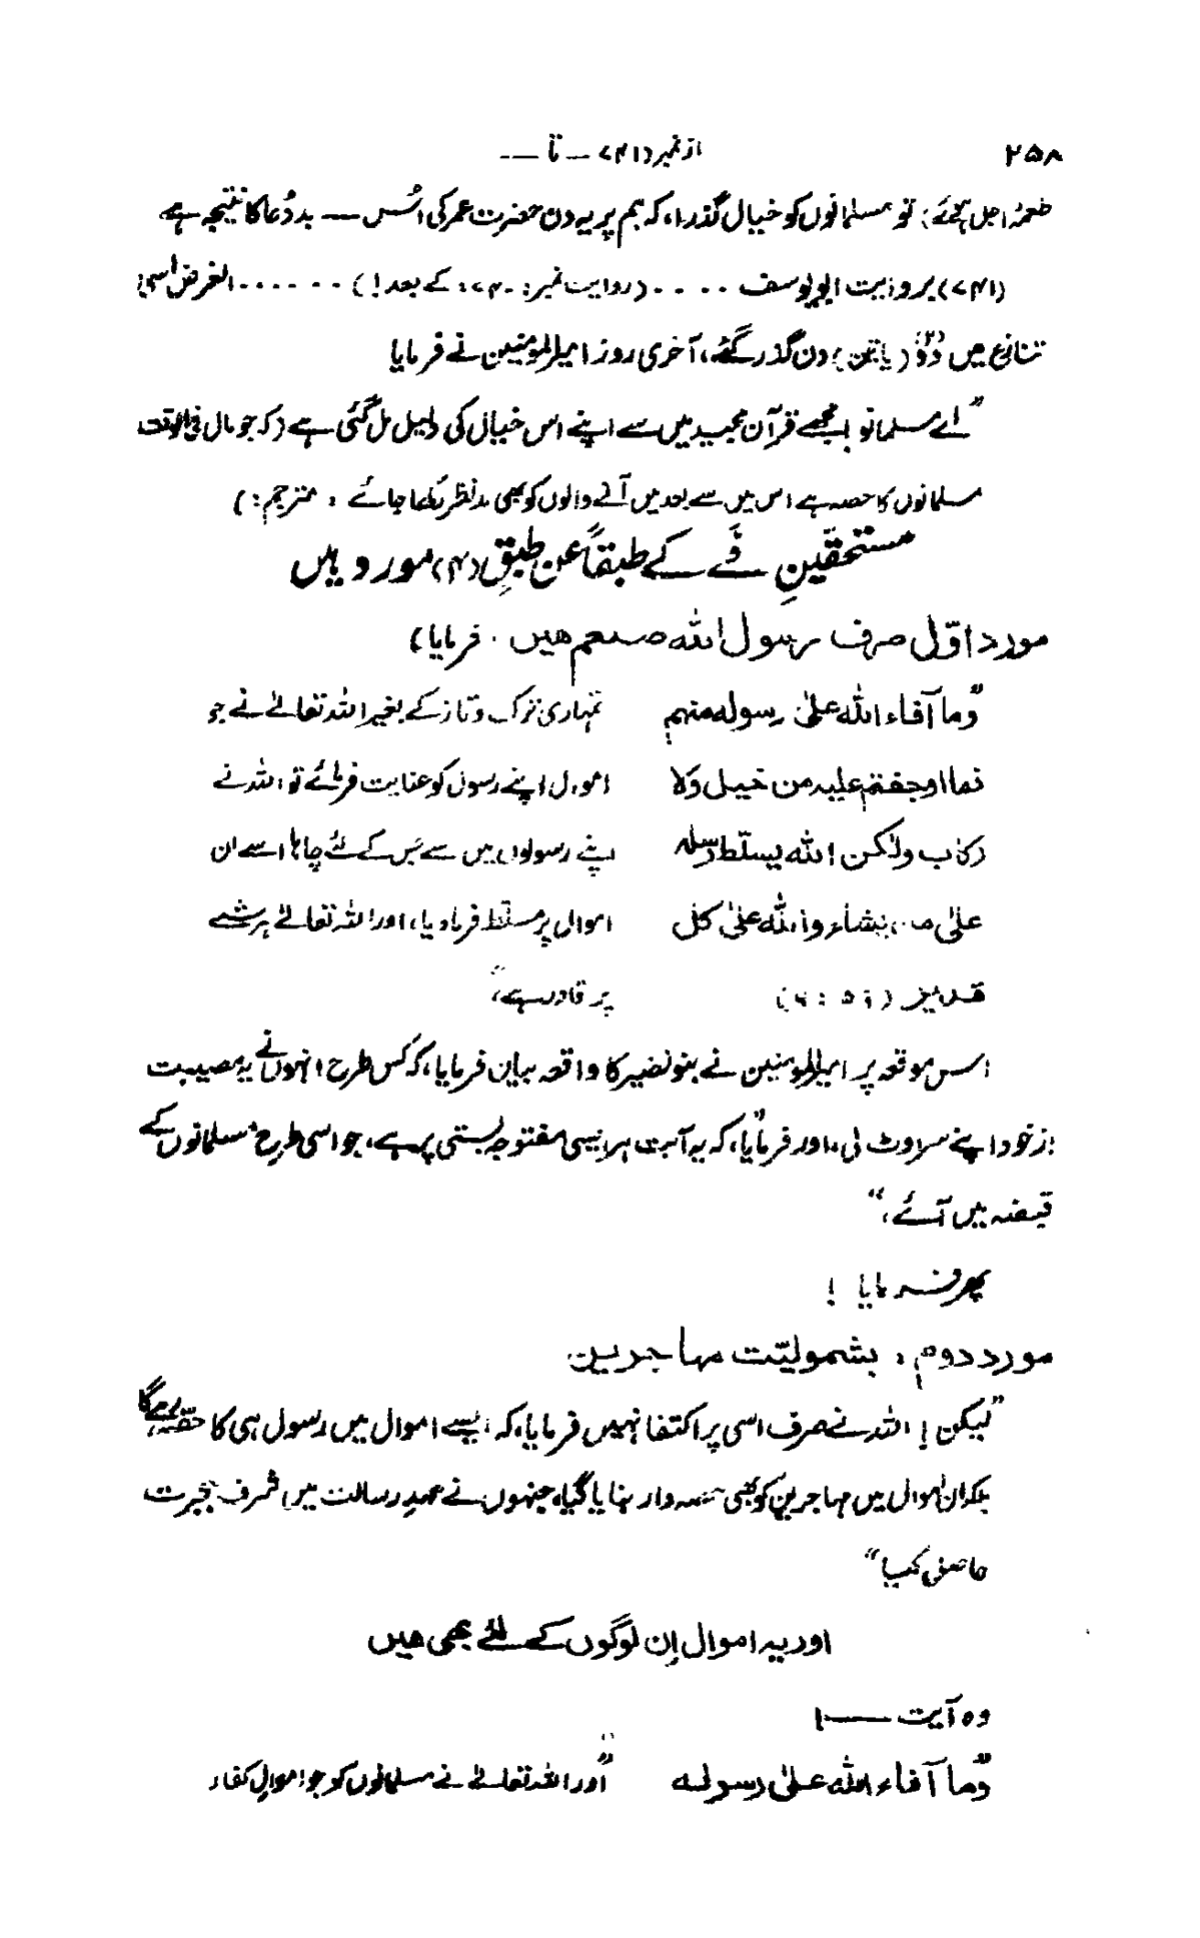 ۲۵۸ از نمبر (۷۴۱ — تا —
طعمۂ اجل ہوگئے؛ تو مسلمانوں کو خیال گذرا، کہ ہم پر یہ دن حضرت عمر کی اُس — بد دُعا کا نتیجہ ہے
(۷۴۱) بروایت ابویوسف .... (روایت نمبر: ۷۴۰: کے بعد!) ...... الغرض اسی
تنازع میں دو (۲) (یا تین) دن گذر گئے، آخری روز امیرالمومنین نے فرمایا
"اے مسلمانو! مجھے قرآن مجید میں سے اپنے اس خیال کی دلیل مل گئی ہے (کہ جو مال فی الوقت
مسلمانوں کا حصہ ہے اس میں سے بعد میں آنے والوں کو بھی مدنظر رکھا جائے : مترجم :)
مستحقّینِ فَے کے طبقاً عن طبقِ (۴) مورد ہیں
مورد اوّل صرف رسول اللہ صلعم ہیں . فرمایا)
"وما آفاء اللہ علیٰ رسولہ منہم تمہاری ترک و تاز کے بغیر اللہ تعالےٰ نے جو
فما اوجفتم علیہ من خیل ولا اموال اپنے رسول کو عنایت فرمائے تو اللہ نے
رکاب ولٰکن اللہ یسلّط رسلہ اپنے رسولوں میں سے جس کے لئے چاہا اسے ان
علیٰ من یشاء واللہ علیٰ کل اموال پر مسلّط فرما دیا، اور اللہ تعالےٰ ہر شے
قدیر (۵۹ : ۶) پر قادر ہے،"
اس موقعہ پر امیرالمومنین نے بنو نضیر کا واقعہ بیان فرمایا، کہ کس طرح انہوں نے یہ مصیبت
از خود اپنے سر اوٹ لی، اور فرمایا، کہ "یہ آیت ہر ایسی مفتوحہ بستی پر ہے، جو اسی طرح مسلمانوں کے
قبضہ میں آئے،"
پھر فرمایا !
مورد دوم ، بشمولیّت مہاجرین
"لیکن ! اللہ نے صرف اسی پر اکتفا نہیں فرمایا، کہ ایسے اموال میں رسول ہی کا حصّہ رہے گا
بلکہ ان اموال میں مہاجرین کو بھی حصہ دار بنایا گیا، جنہوں نے عہدِ رسالت میں شرف ہجرت
حاصل کیا"
اور یہ اموال اِن لوگوں کے لئے بھی ہیں
وہ آیت —۱
"وما آفاء اللہ علیٰ رسولہ "اور اللہ تعالےٰ نے مسلمانوں کو جو اموالِ کفار